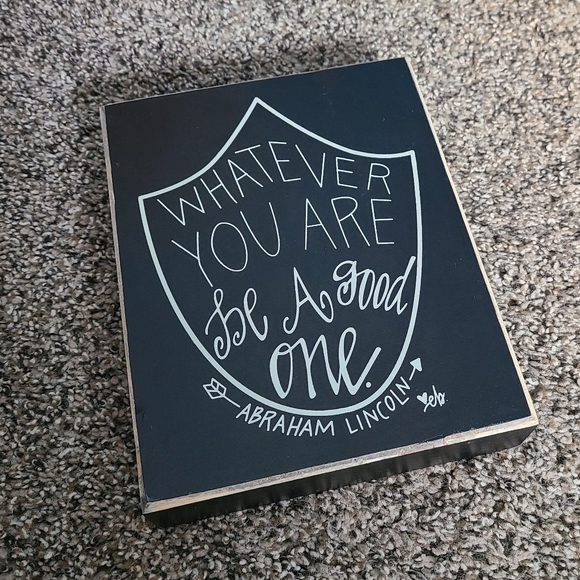 WHATEVER
YOU ARE
be A good
one.
ABRAHAM LINCOLN
eb.